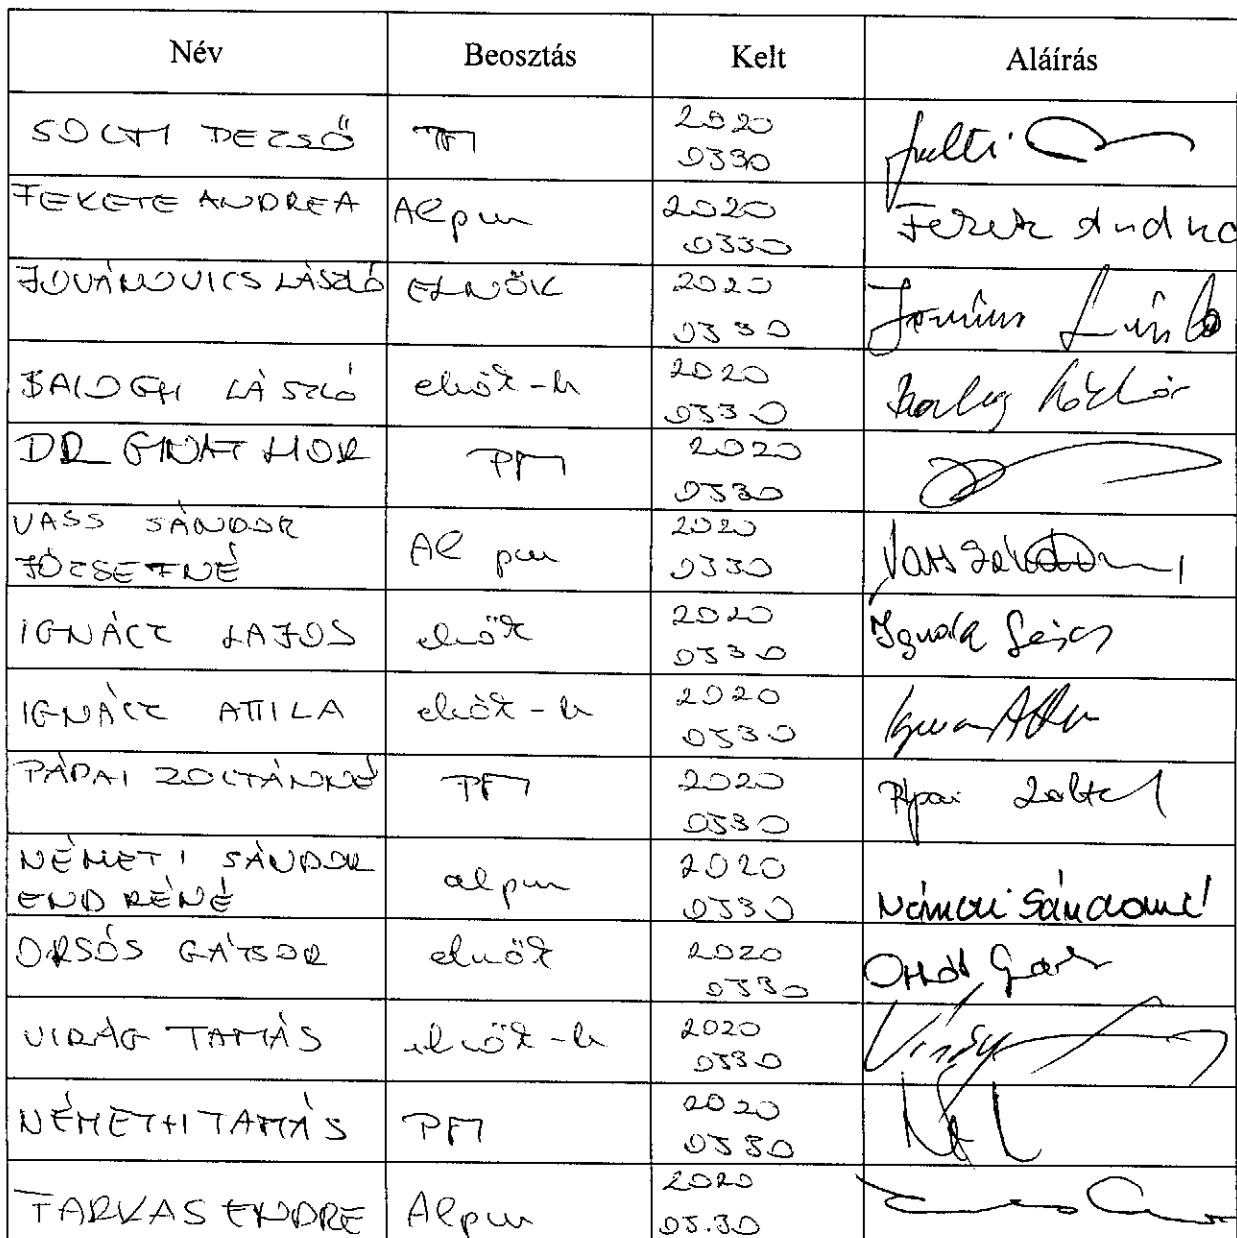 Név Beosztás Kelt Aláírás
SOLTI DEZSŐ PM 2020
0330
FEKETE ANDREA Alpm 2020
0330 Fekete Andrea
JOVÁNOVICS LÁSZLÓ ELNÖK 2020
0330
BALOGH LÁSZLÓ elnök-h 2020
0330
DR PM 2020
0330
VASS SÁNDOR 2020
JÓZSEFNÉ Al pm 0330
IGNÁCZ LAJOS elnök 2020
0330 Ignácz Lajos
IGNÁCZ ATTILA elnök-h 2020
0330
PÁPAI ZOLTÁNNÉ PM 2020
0330 Pápai
NÉMETI SÁNDOR 2020
ENDRÉNÉ alpm 0330 Németi Sándorné
ORSÓS GÁBOR elnök 2020
0330 Orsós Gábor
VIRÁG TAMÁS elnök-h 2020
0330 Virág
NÉMETH TAMÁS PM 2020
0330
TARVAS ENDRE Alpm 2020
03.30